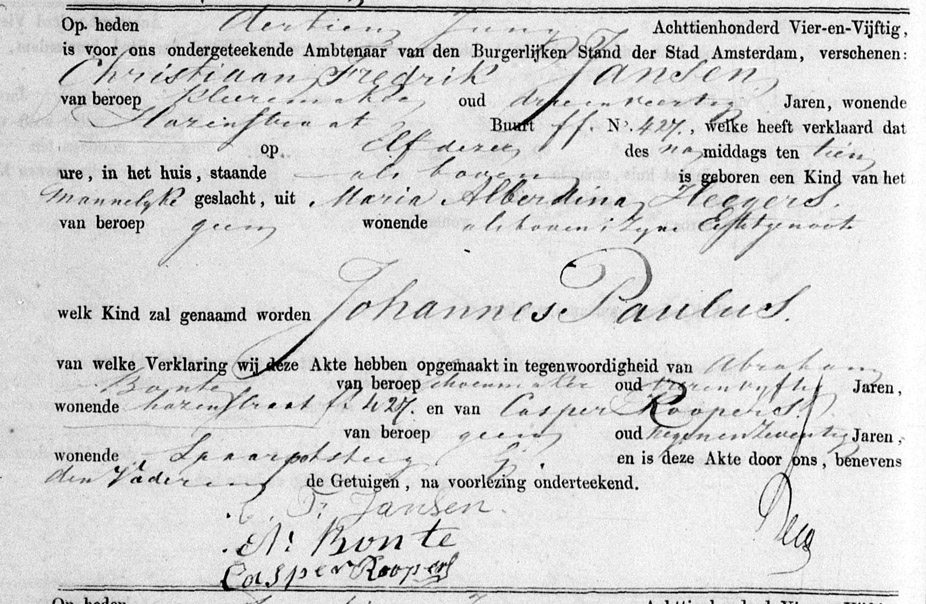 Op heden dertien Juny Achttienhonderd Vier-en-Vijftig,
is voor ons ondergeteekende Ambtenaar van den Burgerlijken Stand der Stad Amsterdam, verschenen:
Christiaan Fredrik Jansen
van beroep kleermaker oud drieenveertig Jaren, wonende
Hazenstraat Buurt ff. No. 427, welke heeft verklaard dat
op Elf dezer des namiddags ten tien
ure, in het huis, staande als boven is geboren een Kind van het
Mannelyke geslacht, uit Maria Alberdina Heegers.
van beroep geen wonende als boven, zyne Echtgenoote
welk Kind zal genaamd worden Johannes Paulus.
van welke Verklaring wij deze Akte hebben opgemaakt in tegenwoordigheid van Abraham
Bonte van beroep schoenmaker oud Jaren,
wonende hazenstraat ff 427. en van Casper Roopers.
van beroep geen oud negenenzeventig Jaren,
wonende en is deze Akte door ons, benevens
den Vader en de Getuigen, na voorlezing onderteekend.
C. F. Jansen.
A. Bonte
Casper Roopers
Op heden Achttienhonderd Vier-en-Vijftig,